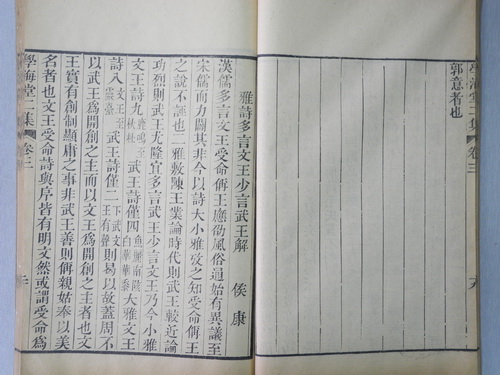 學海堂二集 卷三
郭意者也
雅詩多言文王少言武王解 侯康
漢儒多言文王受命偁王應劭風俗通始有異議至
宋儒而力闢其非今以詩大小雅攷之知受命偁王
之說不誣也二雅敷陳王業論時代則武王較近論
功烈則武王尤隆宜多言武王少言文王乃今小雅
文王詩九鹿鳴至杕杜武王詩僅四魚麗南陔白華華黍大雅文王
詩八文王至靈臺武王詩僅二下武文王有聲則易以故葢周不
以武王爲開創之主而以文王爲開創之主者也文
王實有創制顯庸之事非武王善則偁親姑奉以美
名者也文王受命詩與序皆有明文然或謂受命爲
學海堂二集 卷三